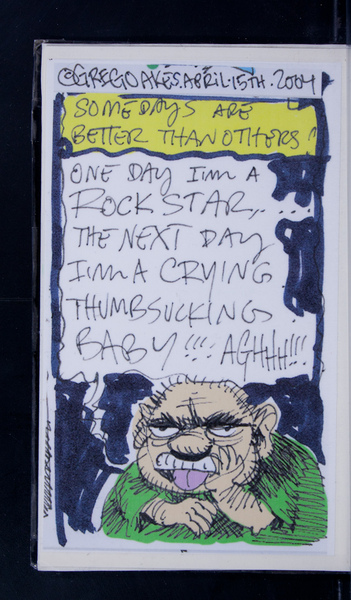 ©GREGOAKES.APRIL.15TH.2004
SOMEDAYS ARE
BETTER THAN OTHERS!
ONE DAY I'M A
ROCK STAR,....
THE NEXT DAY
I'M A CRYING
THUMBSUCKING
BABY!!! AGHHH!!!